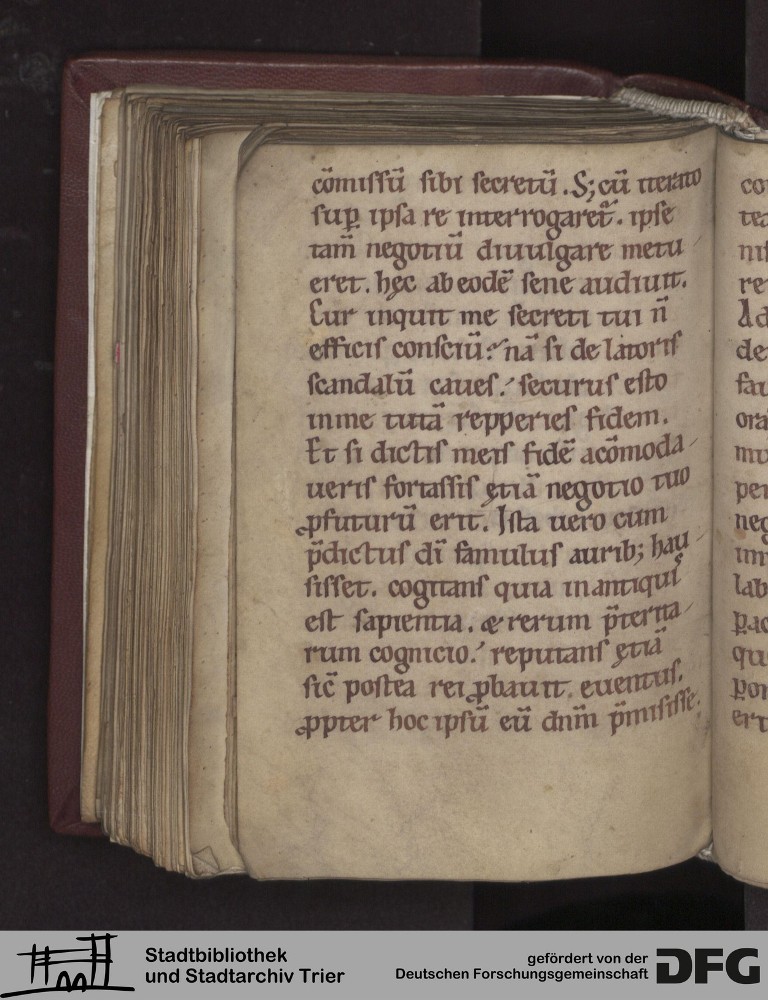 cōmissū sibi secretū. S; cū iterato
sup̱ ipsa re interrogaret᷑. ipse
tam̄ negotiū diuulgare metu
eret. hęc ab eodē sene audiuit.
Cur inquit me secreti tui n̄
efficis consciū? nā si delatoris
scandalū caues, securus esto
in me tutā repperies fidem.
Et si dictis meis fidē acōmoda
ueris fortassis ętiā negotio tuo
ꝓfuturū erit. Ista uero cum
p̄dictus dī famulus aurib; hau
sisset. cogitans quia in antiquis
est sapientia. & rerum p̄terita
rum cognicio. reputans ętiā
sic̄ postea rei ꝓbauit euentus.
ꝓpter hoc ipsū eū dnm̄ p̄misisse.
co
tea
nis
re
Ad
de
fau
ora
mu
per
neg
im
lab
pac
qu
por
ert
Stadtbibliothek
und Stadtarchiv Trier
gefördert von der
Deutschen Forschungsgemeinschaft
DFG